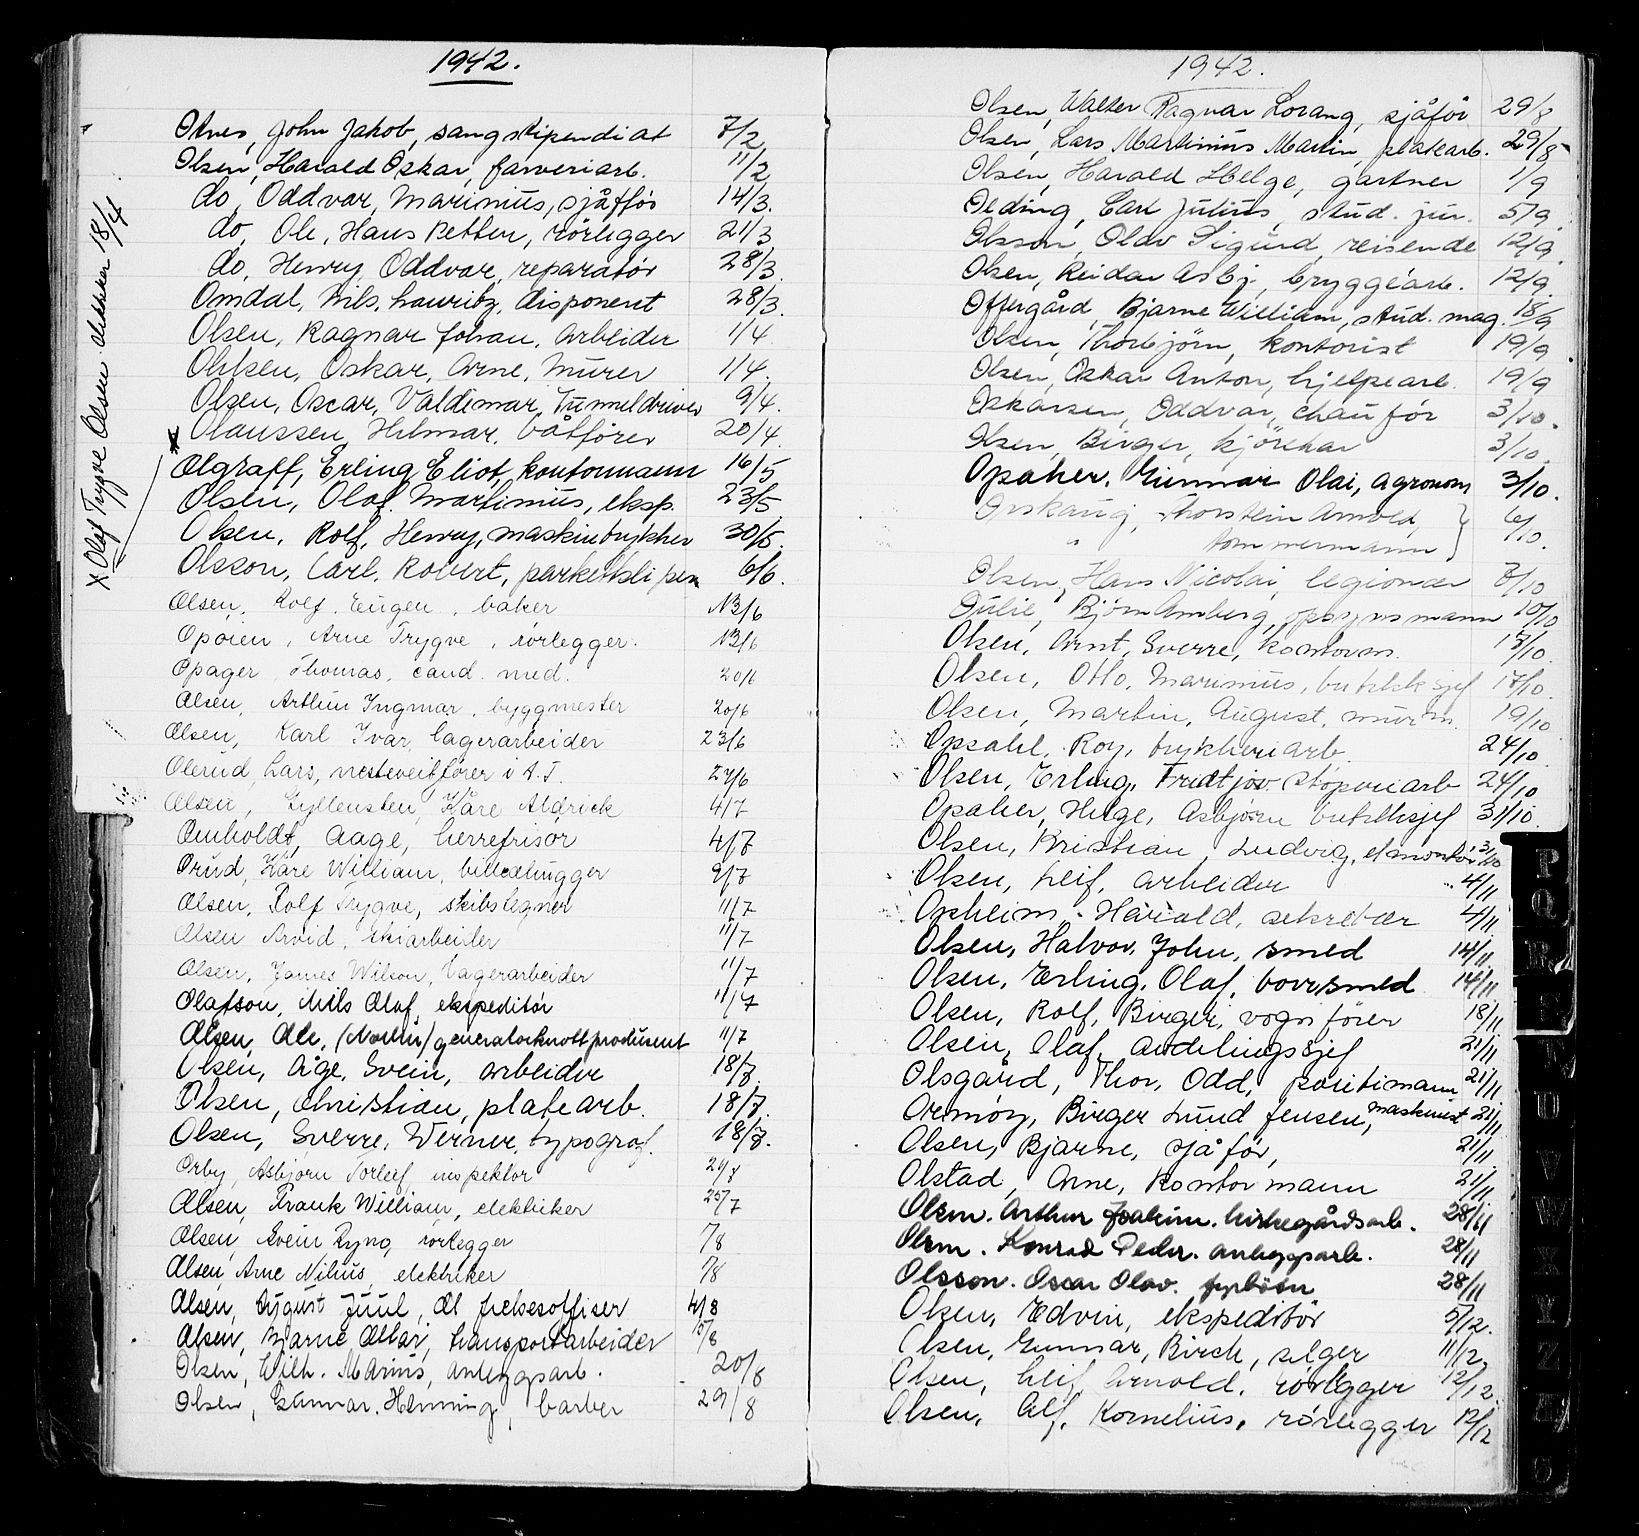 1942.
Otnes, John Jakob, sangstipendiat 7/2
Olsen, Harald Oskar, farveriarb. 11/2
do, Oddvar, Marinius, sjåffør 14/3.
do, Ole, Hans Petter, rørlegger 21/3
do, Henry, Oddvar, reparatør 28/3.
Omdal, Nils, Lauritz, disponent 28/3.
Olsen, Ragnar Johan, Arbeider 1/4
Ohlsen, Oskar, Arne, Murer 1/4.
Olsen, Oscar, Valdemar, Tunneldriver 9/4.
x Olaussen, Hilmar, båtfører 20/4.
Olgraff, Erling Eliot, kontormann 16/5
Olsen, Olaf. Martinius, eksp. 23/5.
Olsen, Rolf, Henry, maskintrykker 30/5.
Olsson, Carl, Robert, parkettsliper 6/6.
Olsen, Rolf Eugen, baker 13/6
Opøien, Arne Trygve, rørlegger. 13/6
Opager, Thomas, cand. med. 20/6
Olsen, Arthur Ingmar, byggmester 20/6
Olsen, Karl Ivar, lagerarbeider 23/6
Olerud, Lars, nesteveitfører i A.T. 27/6
Olsen, Gyllensten, Kåre Aldrick 4/7
Omholdt, Aage, herrefrisør 4/7
Orud, Kåre William, billedhugger 9/7
Olsen, Rolf Trygve, skibstegner 11/7
Olsen Arvid, skiarbeider 11/7
Olsen, James Wilson, Lagerarbeider 11/7
Olafson, Nils Olaf, ekspeditør 11/7
Olsen, Ole, (Martin) generatorknottprodusent 11/7
Olsen, Åge, Svein, arbeider 18/7.
Olsen, Christian, platearb. 18/7.
Olsen, Sverre, Werner, typograf. 18/7.
Orby, Asbjørn Torleif, inspektør
Olsen, Frank William, elektriker 25/7
Olsen, Svein Ryno, rørlegger 7/8
Olsen, Arne Nilius, elektriker 7/8
Olsen, August Juul, frelsesoffiser 4/8
Olsen, Bjarne Ottar, transportarbeider 15/8
Olsen, Wilh. Marius, anleggsarb. 20/8
Olsen, Gunnar. Henning, barber 29/8
x Olaf Trygve Olsen 18/4.
1942.
Olsen, Walter Ragnar Lorang, sjåfør 29/8
Olsen, Lars Martinius Martin, platearb. 29/8
Olsen, Harald Helge, gartner 1/9
Oeding, Carl Julius, stud. jur. 5/9.
Olsson, Olav Sigurd, reisende 12/9.
Olsen, Reidar Asbj., bryggearb. 12/9.
Offergård, Bjarne William, stud. mag. 18/9
Olsen, Thorbjörn, kontorist 19/9
Olsen, Oskar Anton, hjelpearb. 19/9
Oskarsen, Oddvar, chaufför 3/10.
Olsen, Birger, kjörekar 3/10.
Opaker, Gunnar Olai, agronom 3/10.
Orskaug, Thorstein Arnold, 6/10.
" tømmermann
Olsen, Hans Nicolai, legionær 8/10
Oulie, Bjørn Amberg, oppsynsmann 10/10
Olsen, Arnt, Sverre, kontorm. 17/10.
Olsen, Otto, Marinius, butikksjef 17/10.
Olsen, Martin, August, murm. 19/10
Opsahl, Roy, trykkeriarb. 24/10.
Olsen, Erling, Fridtjov. støperiarb 24/10
Opaker, Helge, Asbjørn butikksjef 31/10.
Olsen, Kristian, Ludvig, elmontør 31/10
Olsen, Leif, arbeider 4/11
Opheim, Harald, sekretær 4/11
Olsen, Halvor, John, smed 14/11
Olsen, Erling, Olaf, borrsmed 14/11.
Olsen, Rolf, Birger, vognfører 18/11
Olsen, Olaf, avdelingssjef 21/11
Olsgård, Thor, Odd, politimann 21/11
Ormøy, Birger Lund Jensen, maskinist 21/11
Olsen, Bjarne, sjåfør, 21/11
Olstad, Arne, Kontormann 21/11
Olsen. Arthur Joakim. kirkegårdsarb. 28/11
Olsen. Konrad Peder. anleggsarb. 28/11
Olsson. Oscar Olav. 28/11
Olsen, Edvin, ekspeditör 5/12.
Olsen, Gunnar, Birch, selger 11/12
Olsen, Leif Arnold, rørlegger 12/12
Olsen, Alf, Kornelius, rørlegger 12/12
P
Q
R
S
T
U
V
W
X
Y
Z
Æ
Ö